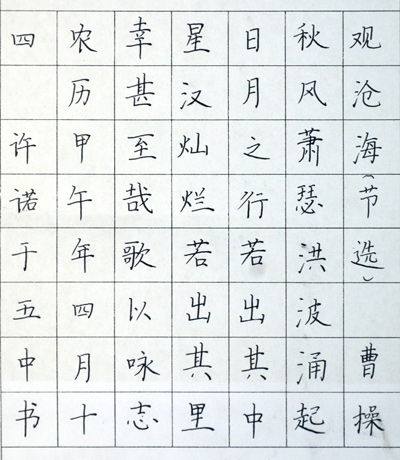 观沧海(节选) 曹操
秋风萧瑟洪波涌起
日月之行若出其中
星汉灿烂若出其里
幸甚至哉歌以咏志
农历甲午年四月十
四 许诺于五中书